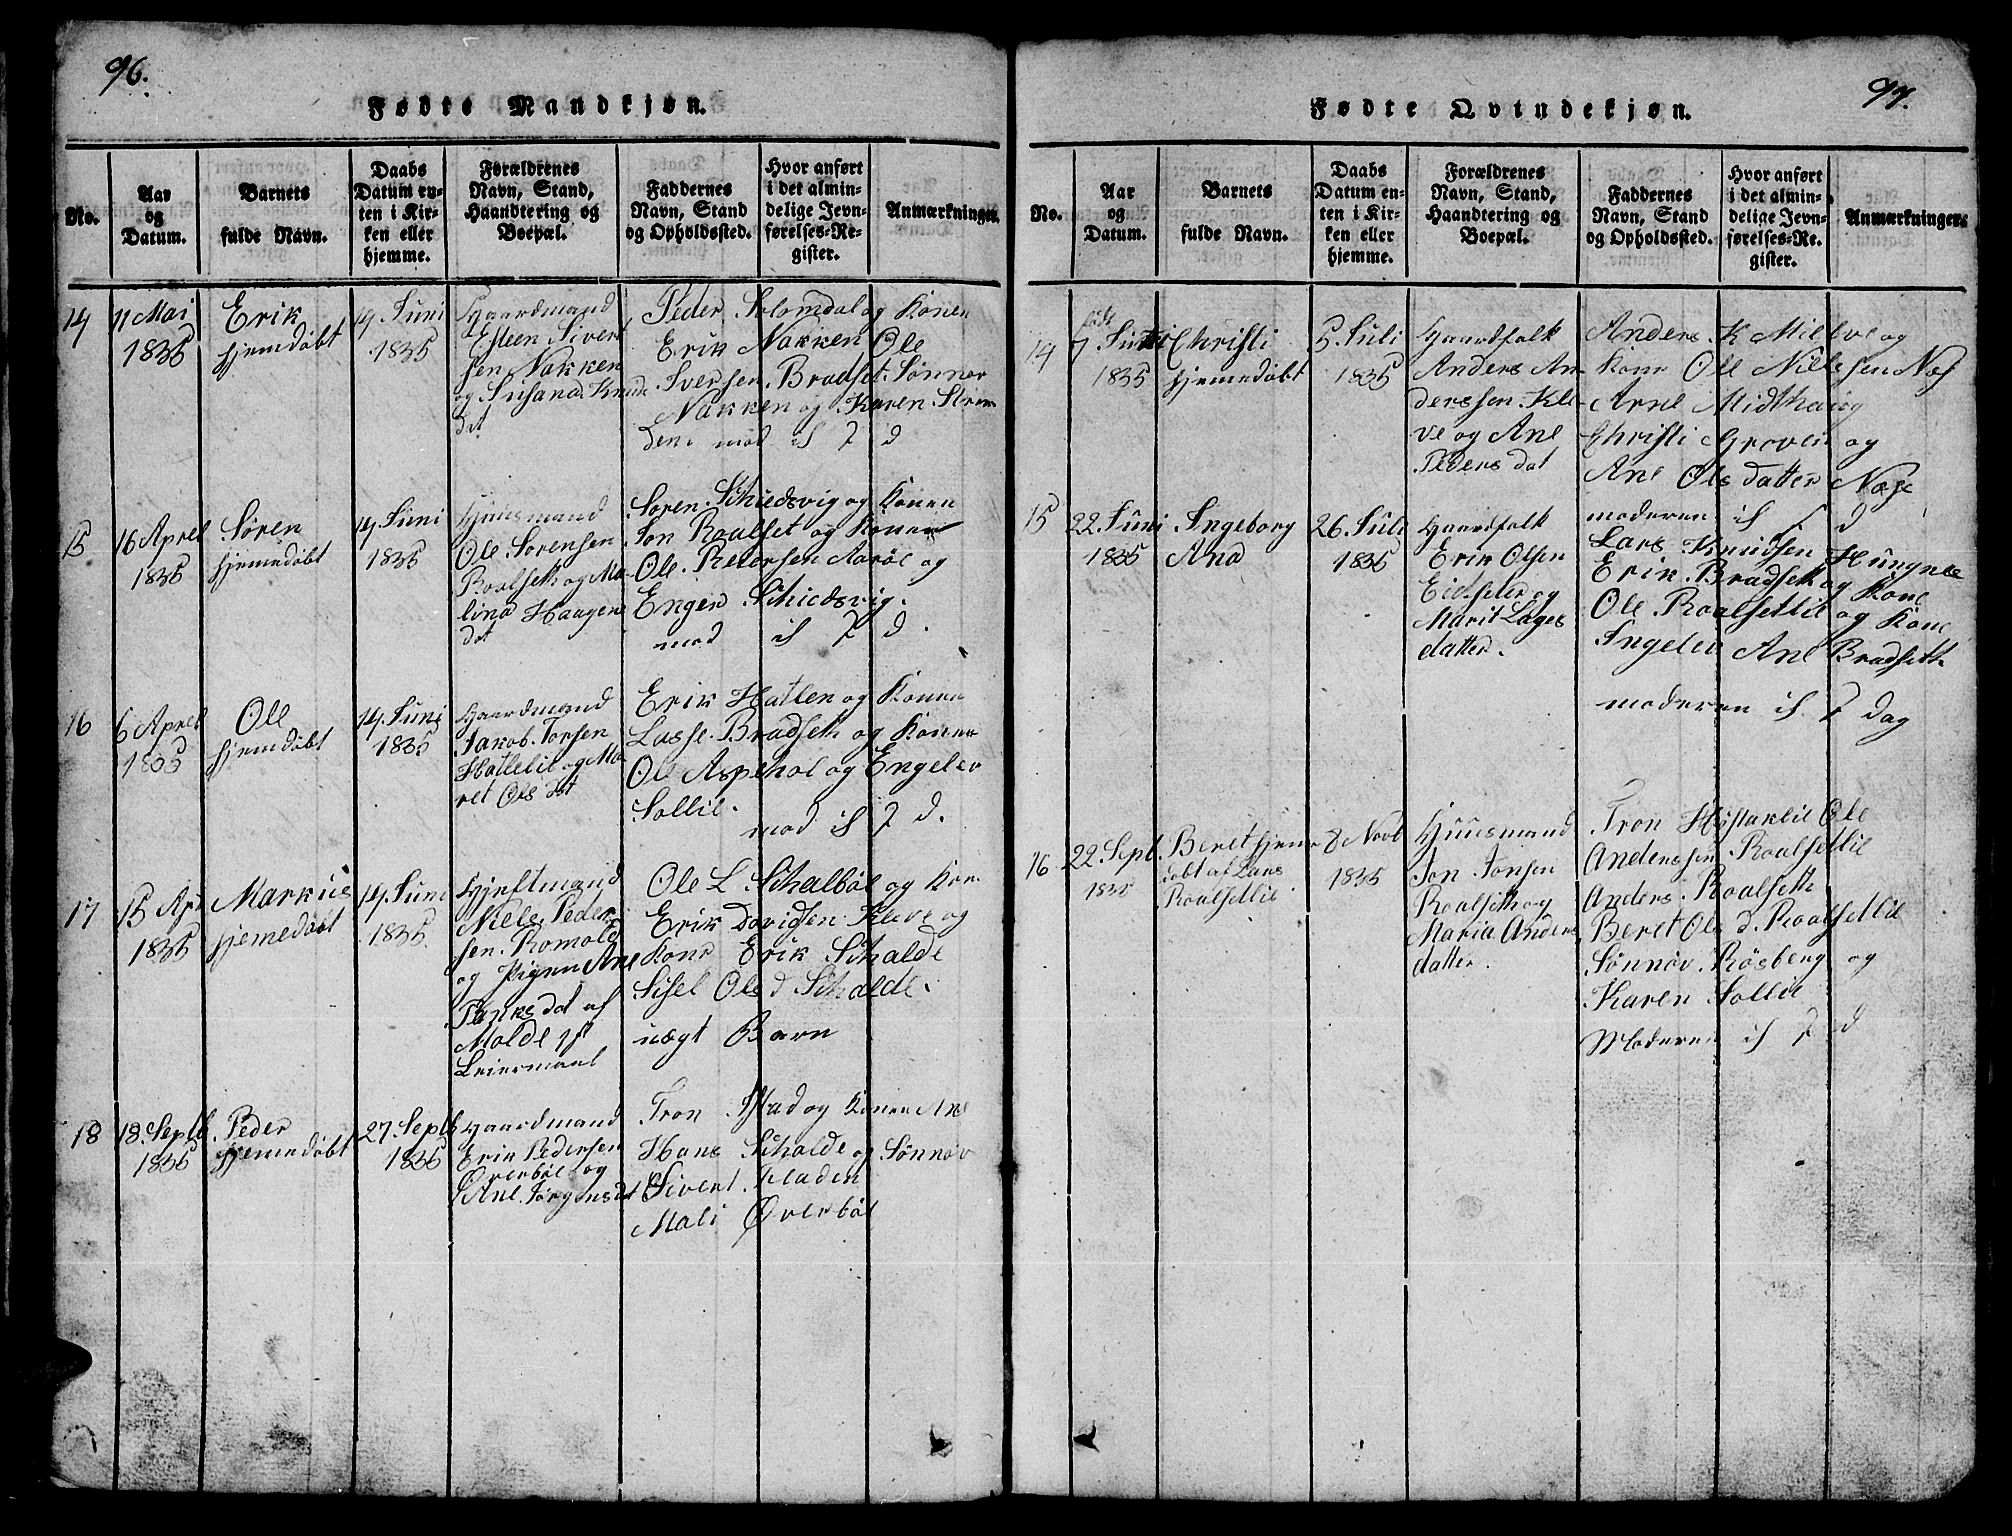 96.
Fødte Mandkjøn.
No.
Aar
og
Datum.
Barnets
fulde Navn.
Daabs
Datum en-
ten i Kir-
ken eller
hjemme.
Forældrenes
Navn, Stand,
Haandtering og
Boepæl.
Faddernes
Navn, Stand
og Opholdssted.
Hvor anført
i det almin-
delige Jevn-
førelses-Re-
gister.
Anmærkninger.
14
11 Mai
1835
Erik
hjemdøbt
14 Juni
1835
Gaardmand
Esteen Sivert
sen Nakken
og Susana Knuds
dat
Peder Solemdal og Konen
Erik Nakken Ole
Iversen Bradset Sønnøv
Nakken og Karen Stran
den mod is 7 d
15
16 Aprel
1835
Søren
hjemdøbt
14 Juni
1835
Huusmand
Ole Sørensen
Roalseth og Ma-
lina Haagens
dat
Søren Schiedsvig og Konen
Jon Roalset og Konen
Ole Petersen Aarøe og
Enger Schiedsvig.
mod is 7 d.
16
6 Aprel
1835
Ole
hjemdøbt
14 Juni
1835
Gaardmand
Jakob Torsen
Hatlelie og Ma
ret Ols dat
Erik Hatlen og Konen
Lasse Bradseth og Konen
Ole Aspehol og Engelev
Sollie.
mod is 7 d.
17
15 Apr
1835
Markus
hjemedøbt
14 Juni
1835
Gyftmand
Niels Peder
sen Romold
og Pigen Ane
Panks dat af
Molde 1st
Leiermaal
Ole L Schalbøe og Kon
Erik Davidsen Kleve og
Kone Erik Schalde
Sisel Ols d Schalde.
uægt Barn
18
18 Septb
1835
Peder
hjemmdøbt
27 Septb
1835
Gaardmand
Erik Pedersen
Øverbøe og
Ane Jørgensdat
Tron Istad og Konen Ane
Hans Schalde og Sønnøv
Sivert Fladen
Mali Øverbøe
97.
Fødte Qvindekjøn.
No.
Aar
og
Datum.
Barnets
fulde Navn.
Daabs
Datum en-
ten i Kir-
ken eller
hjemme.
Forældrenes
Navn, Stand,
Haandtering og
Boepæl.
Faddernes
Navn, Stand
og Opholdssted.
Hvor anført
i det almin-
delige Jevn-
førelses-Re-
gister.
Anmærkninger.
14
født
7 Juni
1835
Christi
hjemedøbt
5 Juli
1835
Gaardfolk
Anders An
derssen Kle
ve og Ane
Peders dat
Anders K Mittve og
Kone Ole Nielssen Næs
Arne Midthaug
Christi Groven og
Ane Ols datter Næsje
moderen is 7 d
15
22 Juni
1835
Ingeborg
Ana
26 Juli
1835
Gaardfolk
Erik Olsen
Eidseter og
Marit Lages
datter.
Lars Knudsen Hungnes
Erik Bradseth og Kone
Ole Roalsetlie og Kone
Ingelev Ane Bradseth
moderen is 7 dag
16
22 Sept.
1835
Beret hjem
døbt af Lars
Roalsetlie
8 Novb
1835
Huusmand
Jon Jonsen
Roalseth og
Maria Anders
datter.
Tron Høstaklie Ole
Anderssen Roalsetlie
Anders Roalseth
Beret Ols d. Roalsetlie
Sønnøv Røsberg og
Karen Sollie
Moderen is 7 d